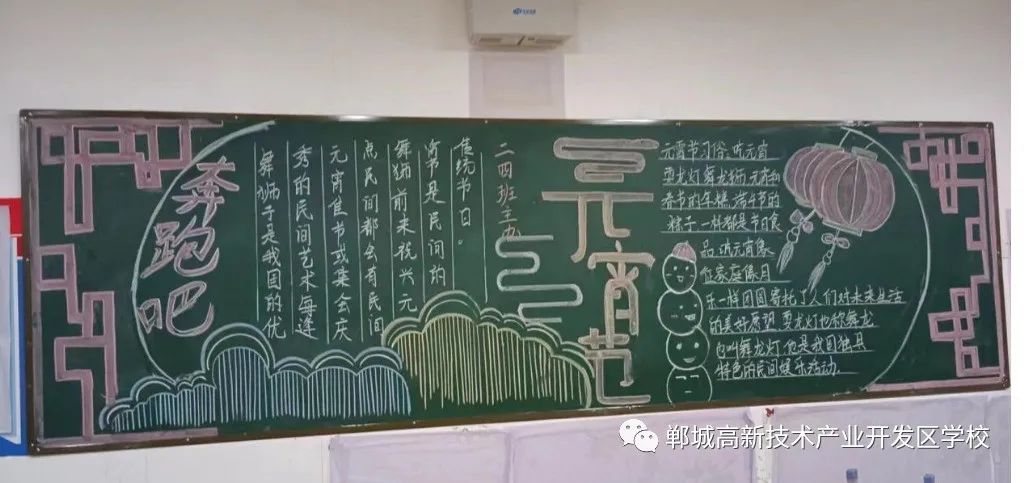 奔跑吧
舞狮子是我国的优
秀的民间艺术每逢
元宵佳节或集会庆
点民间都会有民间
舞狮前来祝兴元
宵节是民间的
传统节日。
二四班主办
元宵节
元宵节习俗:吃元宵
耍龙灯舞龙狮,元宵和
春节的年糕,端午节的
粽子一样都是节日食
品,吃元宵像
征家庭像月
乐一样团圆寄托了人们对未来生活
的美好愿望 耍龙灯也称舞龙
也叫舞龙灯,他是我国独具
特色的民间娱乐活动.
郸城高新技术产业开发区学校